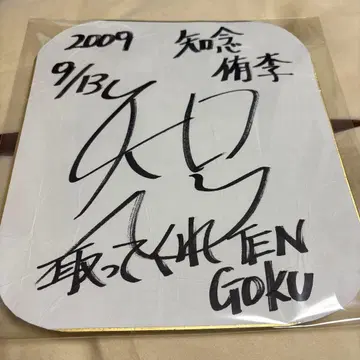 2009 知念
9/13 侑李
取ってくれ TEN
GOKU